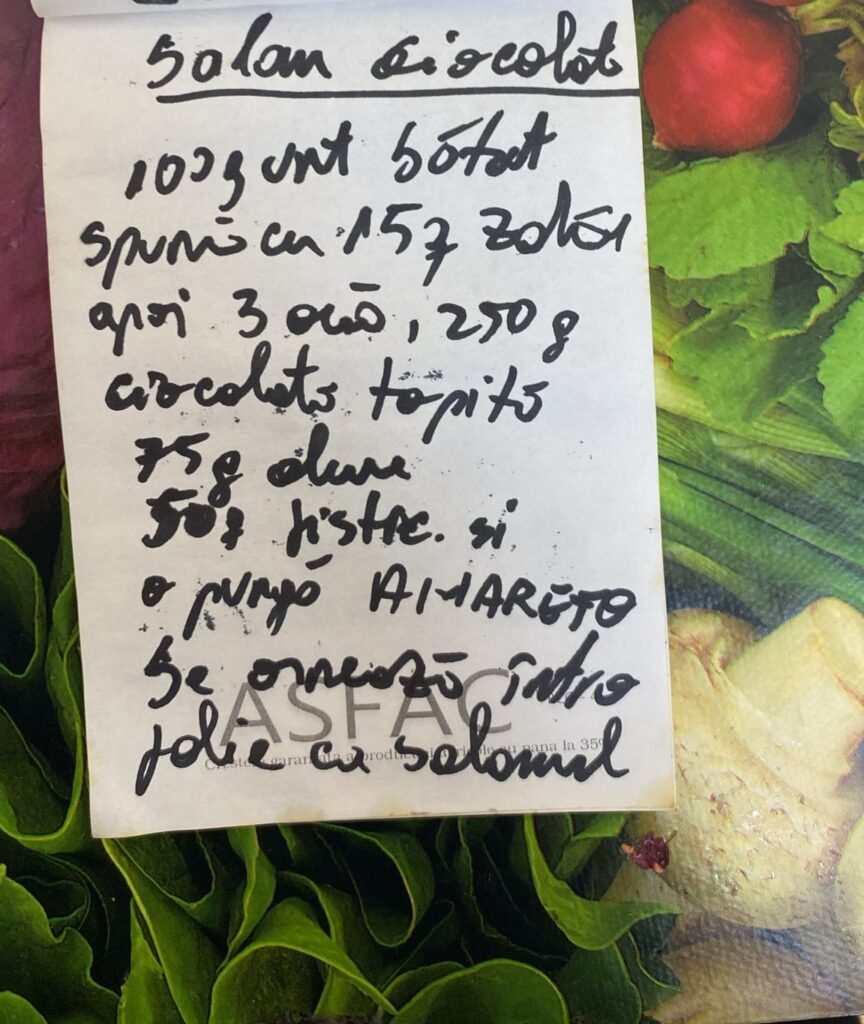 Salam ciocolată
100g unt bătut
spumă cu 157 zahăr
apoi 3 ouă, 250g
ciocolată topită
75g alune
50g fistic. si
o pungă AMARETO
Se ornează într o
folie ca salamul
ASFAC
Crește garantat a producti agricole cu pana la 35%